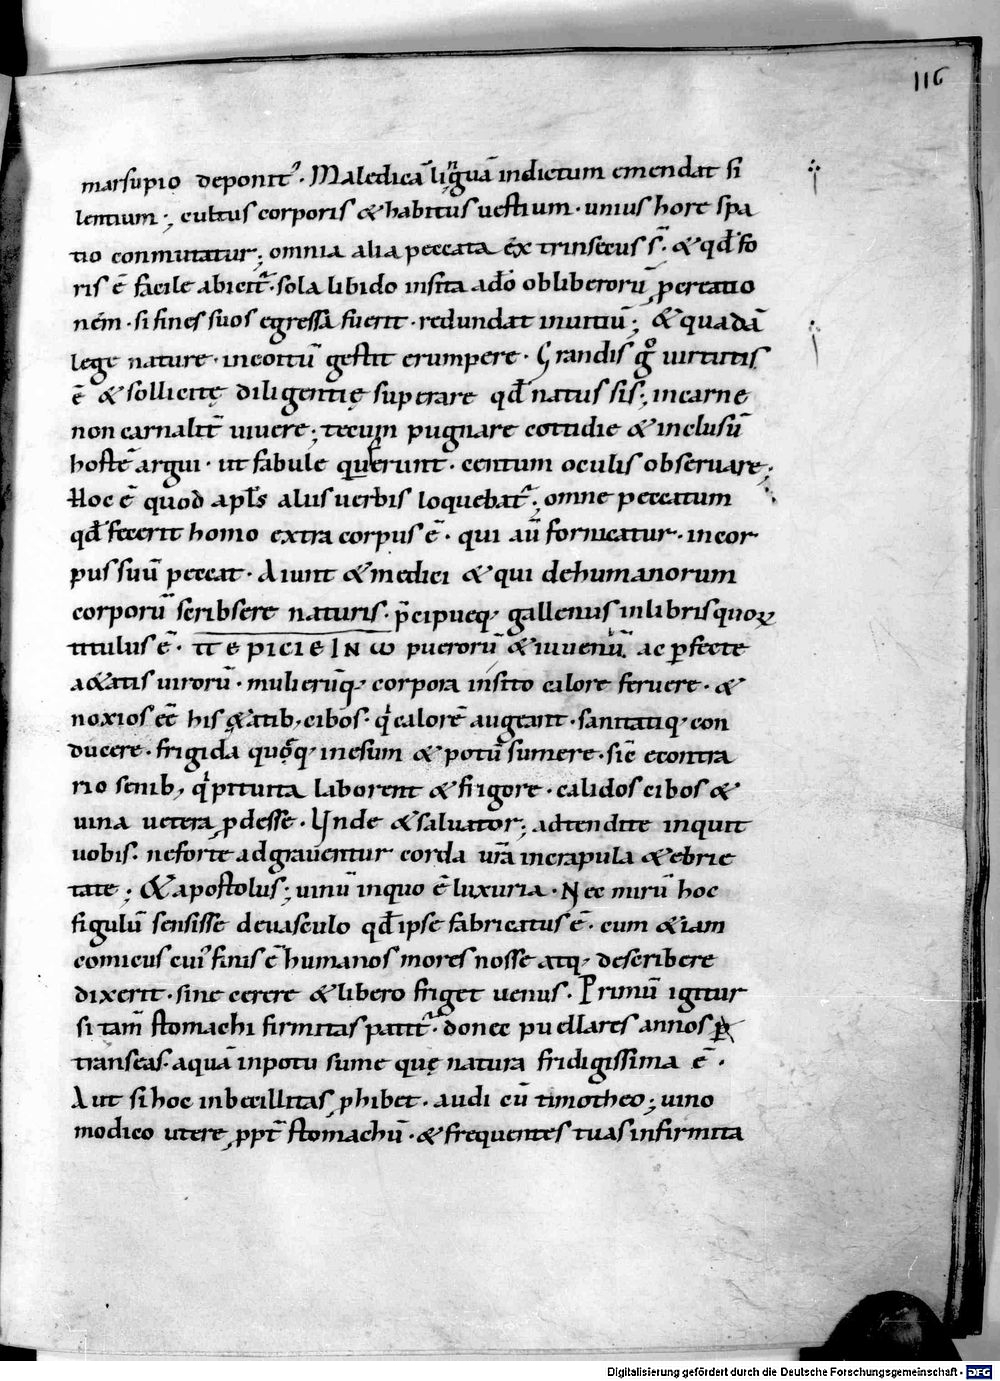 116
marsupio deponit᷑ · Maledicā linguā indictum emendat si
lentium ; cultus corporis & habitus uestium · unius hore spa
tio conmutatur ; omnia alia peccata extrinsecus s̄ · & qđ fo
ris ē facile abicit᷑ · sola libido insita a dō ob liberorū ꝓcreatio
nem · si fines suos egressa fuerit · redundat inuitiū ; & quadā
lege nature · incoitū gestit erumpere · Grandis gͦ uirtutis
ē & sollicitę diligentię superare qđ natus sis ; incarne
non carnalit̄ uiuere ; tecum pugnare cottidie & inclusū
hostē argui · ut fabule querunt · centum oculis obseruare ;
Hoc ē quod apl̄s aliis uerbis loquebat᷑ ; omne peccatum
qđ fecerit homo extra corpus ē · qui aū fornicatur · incor
pus suū peccat · Aiunt & medici & qui dehumanorum
corporū scribsere naturis · p̄cipueq; gallenus inlibris quoꝝ
titulus ē · περιςιεινω puerorū & iuuenū · ac ꝑfecte
aetatis uirorū · mulierūq; corpora insito calore feruere · &
noxios eē his ętatib; cibos · qͥ calorē augeant · sanitatiq; con
ducere · frigida quoq; inesum & potū sumere · sic̄ econtra
rio senib; qͥ pituita laborent & frigore · calidos cibos &
uina uetera ꝓdesse · Unde & saluator ; adtendite inquit
uobis · neforte adgrauentur corda ur̄a incrapula & ebrie
tate ; & apostolus ; uinū inquo ē luxuria · Nec mirū hoc
figulū sensisse deuasculo qđ ipse fabricatus ē · cum &iam
comicus cui᷒ finis ē humanos mores nosse atq; describere
dixerit · sine cerere & libero friget uenus · Primū igitur
si tam̄ stomachi firmitas patit᷑ · donec puellares annos
transeas · aquā inpotu sume quę natura fridigissima ē ·
Aut si hoc inbecillitas ꝓhibet · audi cū timotheo ; uino
modico utere ꝓpt̄ stomachū · & frequentes tuas infirmita
Digitalisierung gefördert durch die Deutsche Forschungsgemeinschaft - DFG